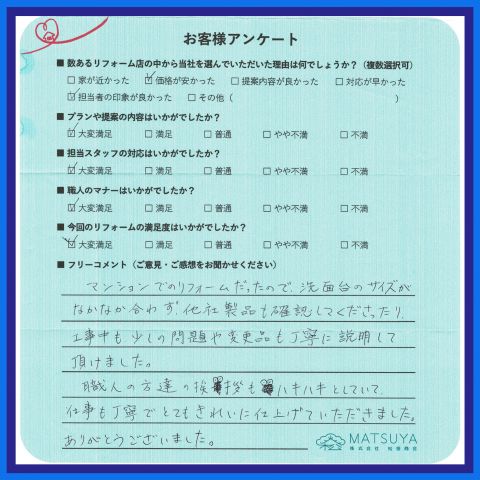 お客様アンケート
■ 数あるリフォーム店の中から当社を選んでいただいた理由は何でしょうか?（複数選択可）
□ 家が近かった ☑ 価格が安かった □ 提案内容が良かった □ 対応が早かった
☑ 担当者の印象が良かった □ その他（ ）
■ プランや提案の内容はいかがでしたか?
☑ 大変満足 □ 満足 □ 普通 □ やや不満 □ 不満
■ 担当スタッフの対応はいかがでしたか?
☑ 大変満足 □ 満足 □ 普通 □ やや不満 □ 不満
■ 職人のマナーはいかがでしたか?
☑ 大変満足 □ 満足 □ 普通 □ やや不満 □ 不満
■ 今回のリフォームの満足度はいかがでしたか?
☑ 大変満足 □ 満足 □ 普通 □ やや不満 □ 不満
■ フリーコメント（ご意見・ご感想をお聞かせください）
マンションでのリフォームだったので、洗面台のサイズが
なかなか合わず、他社製品も確認してくださったり、
工事中も少しの問題や変更品も丁寧に説明して
頂けました。
職人の方達の挨拶もハキハキとしていて、
仕事も丁寧でとてもきれいに仕上げていただきました。
ありがとうございました。
MATSUYA
株式会社 松屋商店